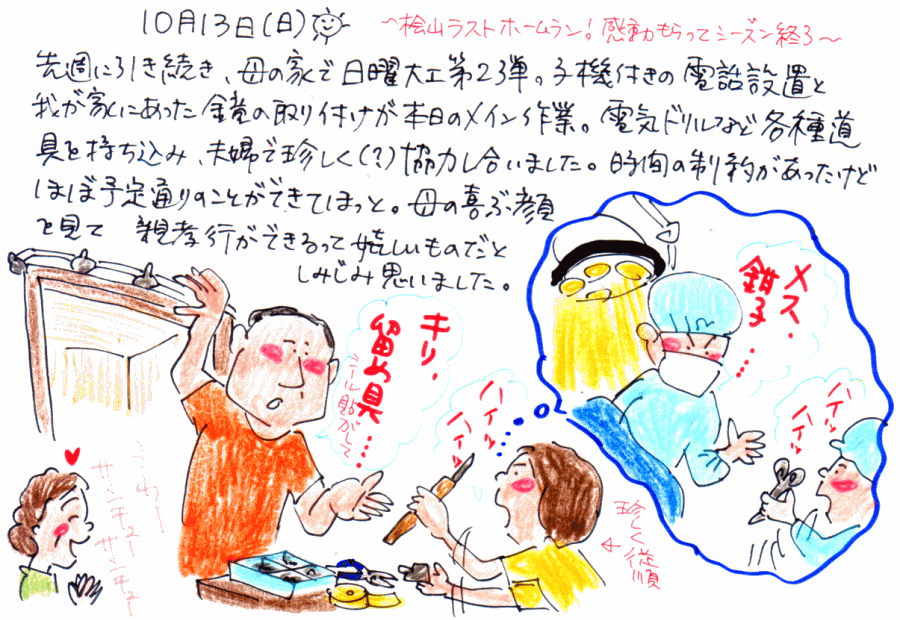 10月13日(日)
〜桧山ラストホームラン!感動もらってシーズン終了〜
先週に引き続き、母の家で日曜大工第23弾。子機付きの電話設置と
我が家にあった鏡の取り付けが本日のメイン作業。電気ドリルなど各種道
具を持ち込み、夫婦で珍しく(?)協力し合いました。時間の制約があったけど
ほぼ予定通りのことができてほっと。母の喜ぶ顔
を見て 親孝行ができるって嬉しいものだと
しみじみ思いました。
メス、
鉗子…
ハイッ
ハイッ
キリ、
留め具…
シール貼がして
ハイッ
ハイッ
うわー
サンキュー
サンキュー
珍しく従順